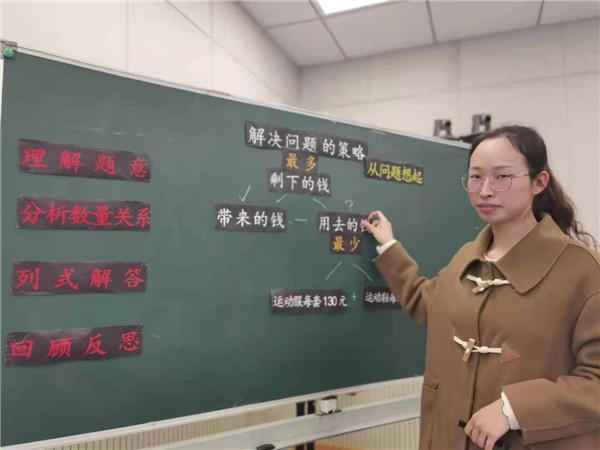 解决问题的策略
从问题想起
最多
剩下的钱
带来的钱 — 用去的钱
?
最少
运动服每套130元 + 运动鞋每
理解题意
分析数量关系
列式解答
回顾反思